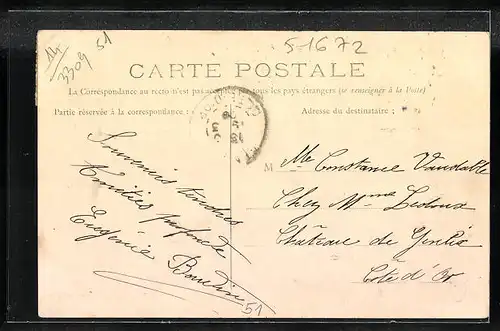 14
3309
51
5-1672
CARTE POSTALE
La Correspondance au recto n'est pas acceptée tous les pays étrangers (se renseigner à la Poste)
Partie réservée à la correspondance :
Adresse du destinataire :
Souvenirs tendres
Amitiés
Eugénie Bourdin
51
M Me Constance
Chez Mme Ledoux
Château de Genlis
Côte d'Or